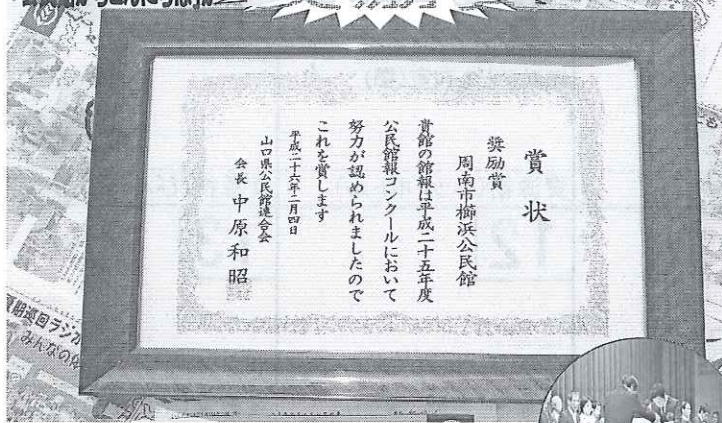 賞状
奨励賞
周南市櫛浜公民館
貴館の館報は平成二十五年度
公民館報コンクールにおいて
努力が認められましたので
これを賞します
平成二十六年二月四日
山口県公民館連合会
会長 中原和昭
夏期巡回ラジオ
みんなの